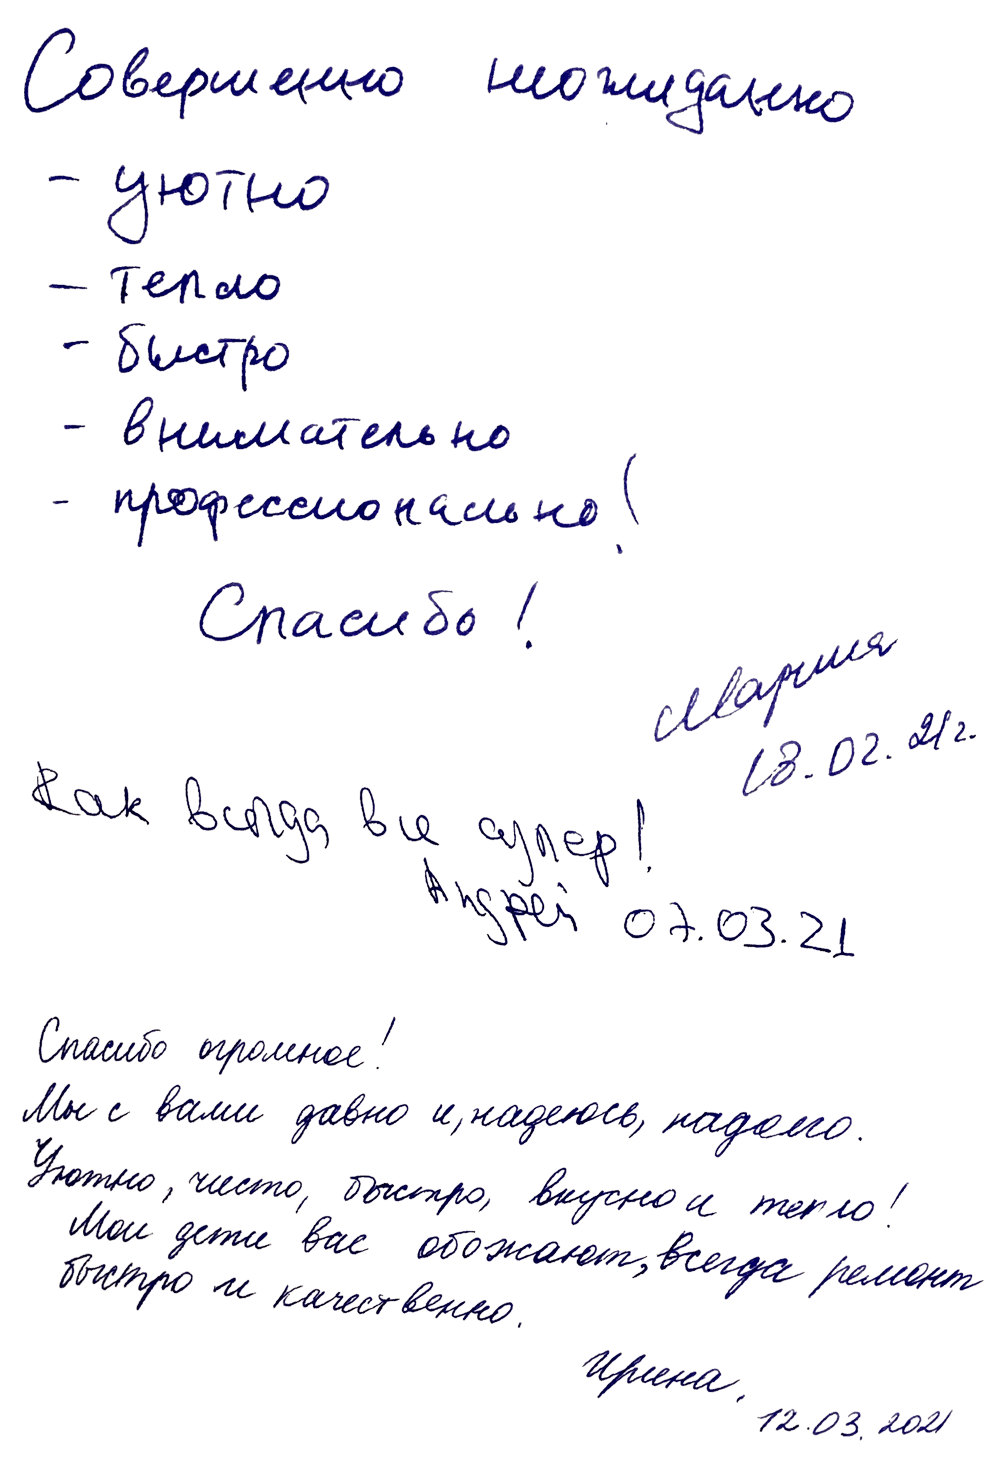 Совершенно неожиданно
- уютно
- тепло
- быстро
- внимательно
- профессионально!
Спасибо!
Мария
18.02.21г.
Как всегда все супер!
Андрей 07.03.21
Спасибо огромное!
Мы с вами давно и, надеюсь, надолго.
Уютно, чисто, быстро, вкусно и тепло!
Мои дети вас обожают, всегда ремонт
быстро и качественно.
Ирина.
12.03.2021